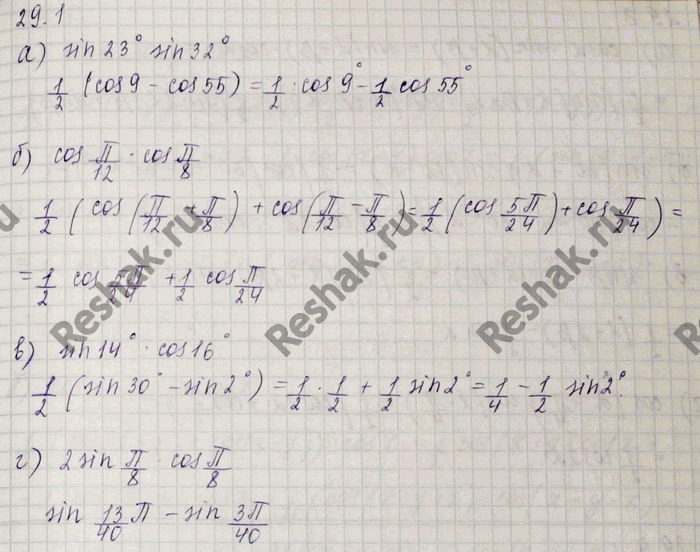 29.1
а) sin 23° sin 32°
1/2 (cos 9 - cos 55) = 1/2 · cos 9° - 1/2 cos 55°
б) cos π/12 · cos π/8
1/2 (cos (π/12 + π/8) + cos (π/12 - π/8) = 1/2 (cos 5π/24) + cos π/24) =
= 1/2 cos 5π/24 + 1/2 cos π/24
в) sin 14° · cos 16°
1/2 (sin 30° - sin 2°) = 1/2 · 1/2 + 1/2 sin 2° = 1/4 - 1/2 sin 2°.
г) 2 sin π/8 · cos π/8
sin 13/40 π - sin 3π/40
Reshak.ru
Reshak.ru
Reshak.ru